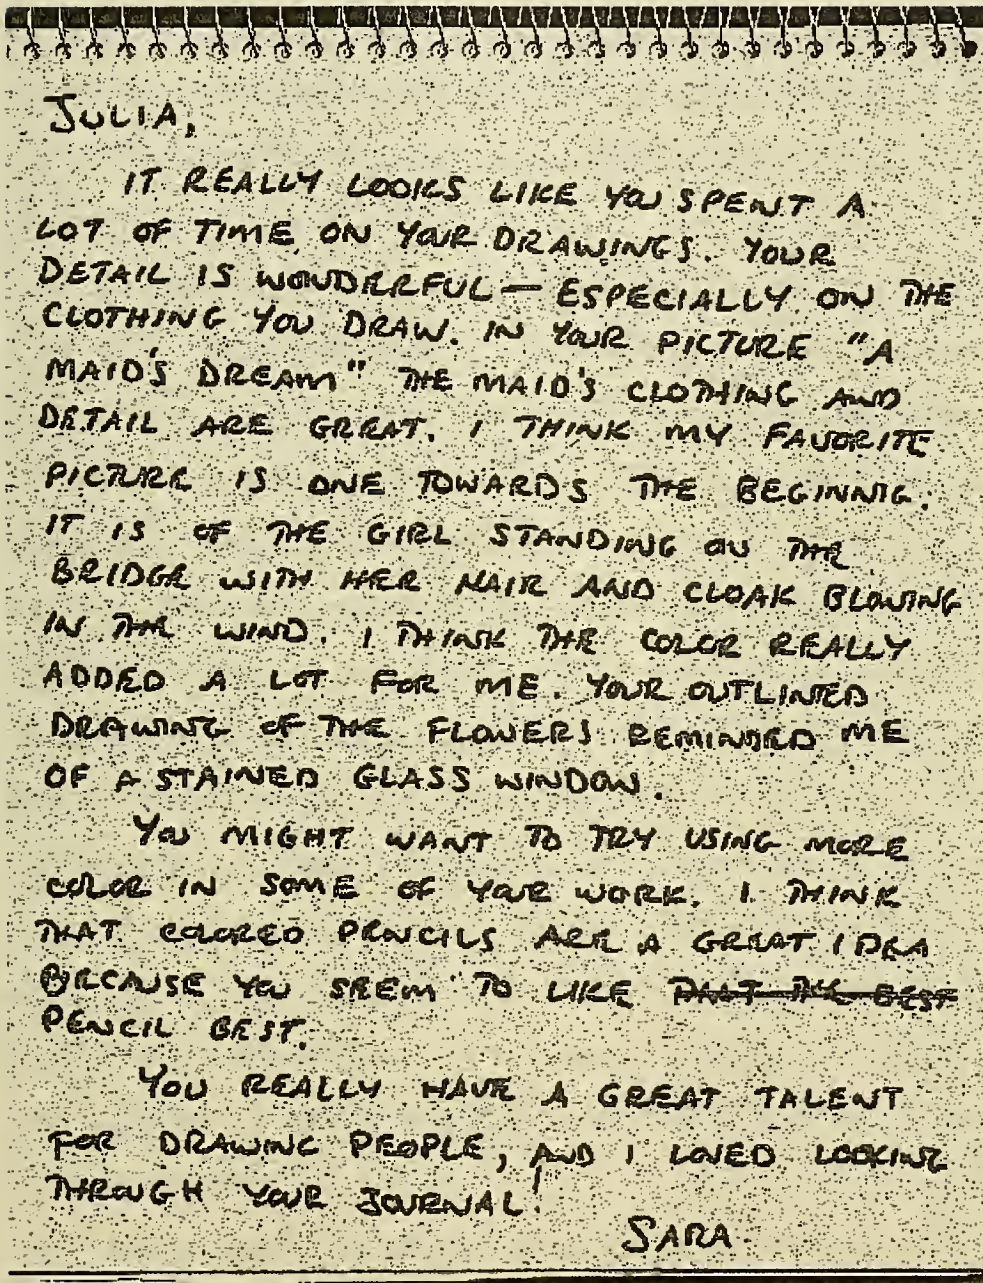 JULIA,
IT REALLY LOOKS LIKE YOU SPENT A
LOT OF TIME ON YOUR DRAWINGS. YOUR
DETAIL IS WONDERFUL — ESPECIALLY ON THE
CLOTHING YOU DRAW. IN YOUR PICTURE "A
MAID'S DREAM" THE MAID'S CLOTHING AND
DETAIL ARE GREAT. I THINK MY FAVORITE
PICTURE IS ONE TOWARDS THE BEGINNIG.
IT IS OF THE GIRL STANDING ON THE
BRIDGE WITH HER HAIR AND CLOAK BLOWING
IN THE WIND. I THINK THE COLOR REALLY
ADDED A LOT FOR ME. YOUR OUTLINED
DRAWING OF THE FLOWERS REMINDED ME
OF A STAINED GLASS WINDOW.
YOU MIGHT WANT TO TRY USING MORE
COLOR IN SOME OF YOUR WORK. I THINK
THAT COLORED PENCILS ARE A GREAT IDEA
BECAUSE YOU SEEM TO LIKE THAT THE BEST
PENCIL BEST.
YOU REALLY HAVE A GREAT TALENT
FOR DRAWING PEOPLE, AND I LOVED LOOKING
THROUGH YOUR JOURNAL!
SARA